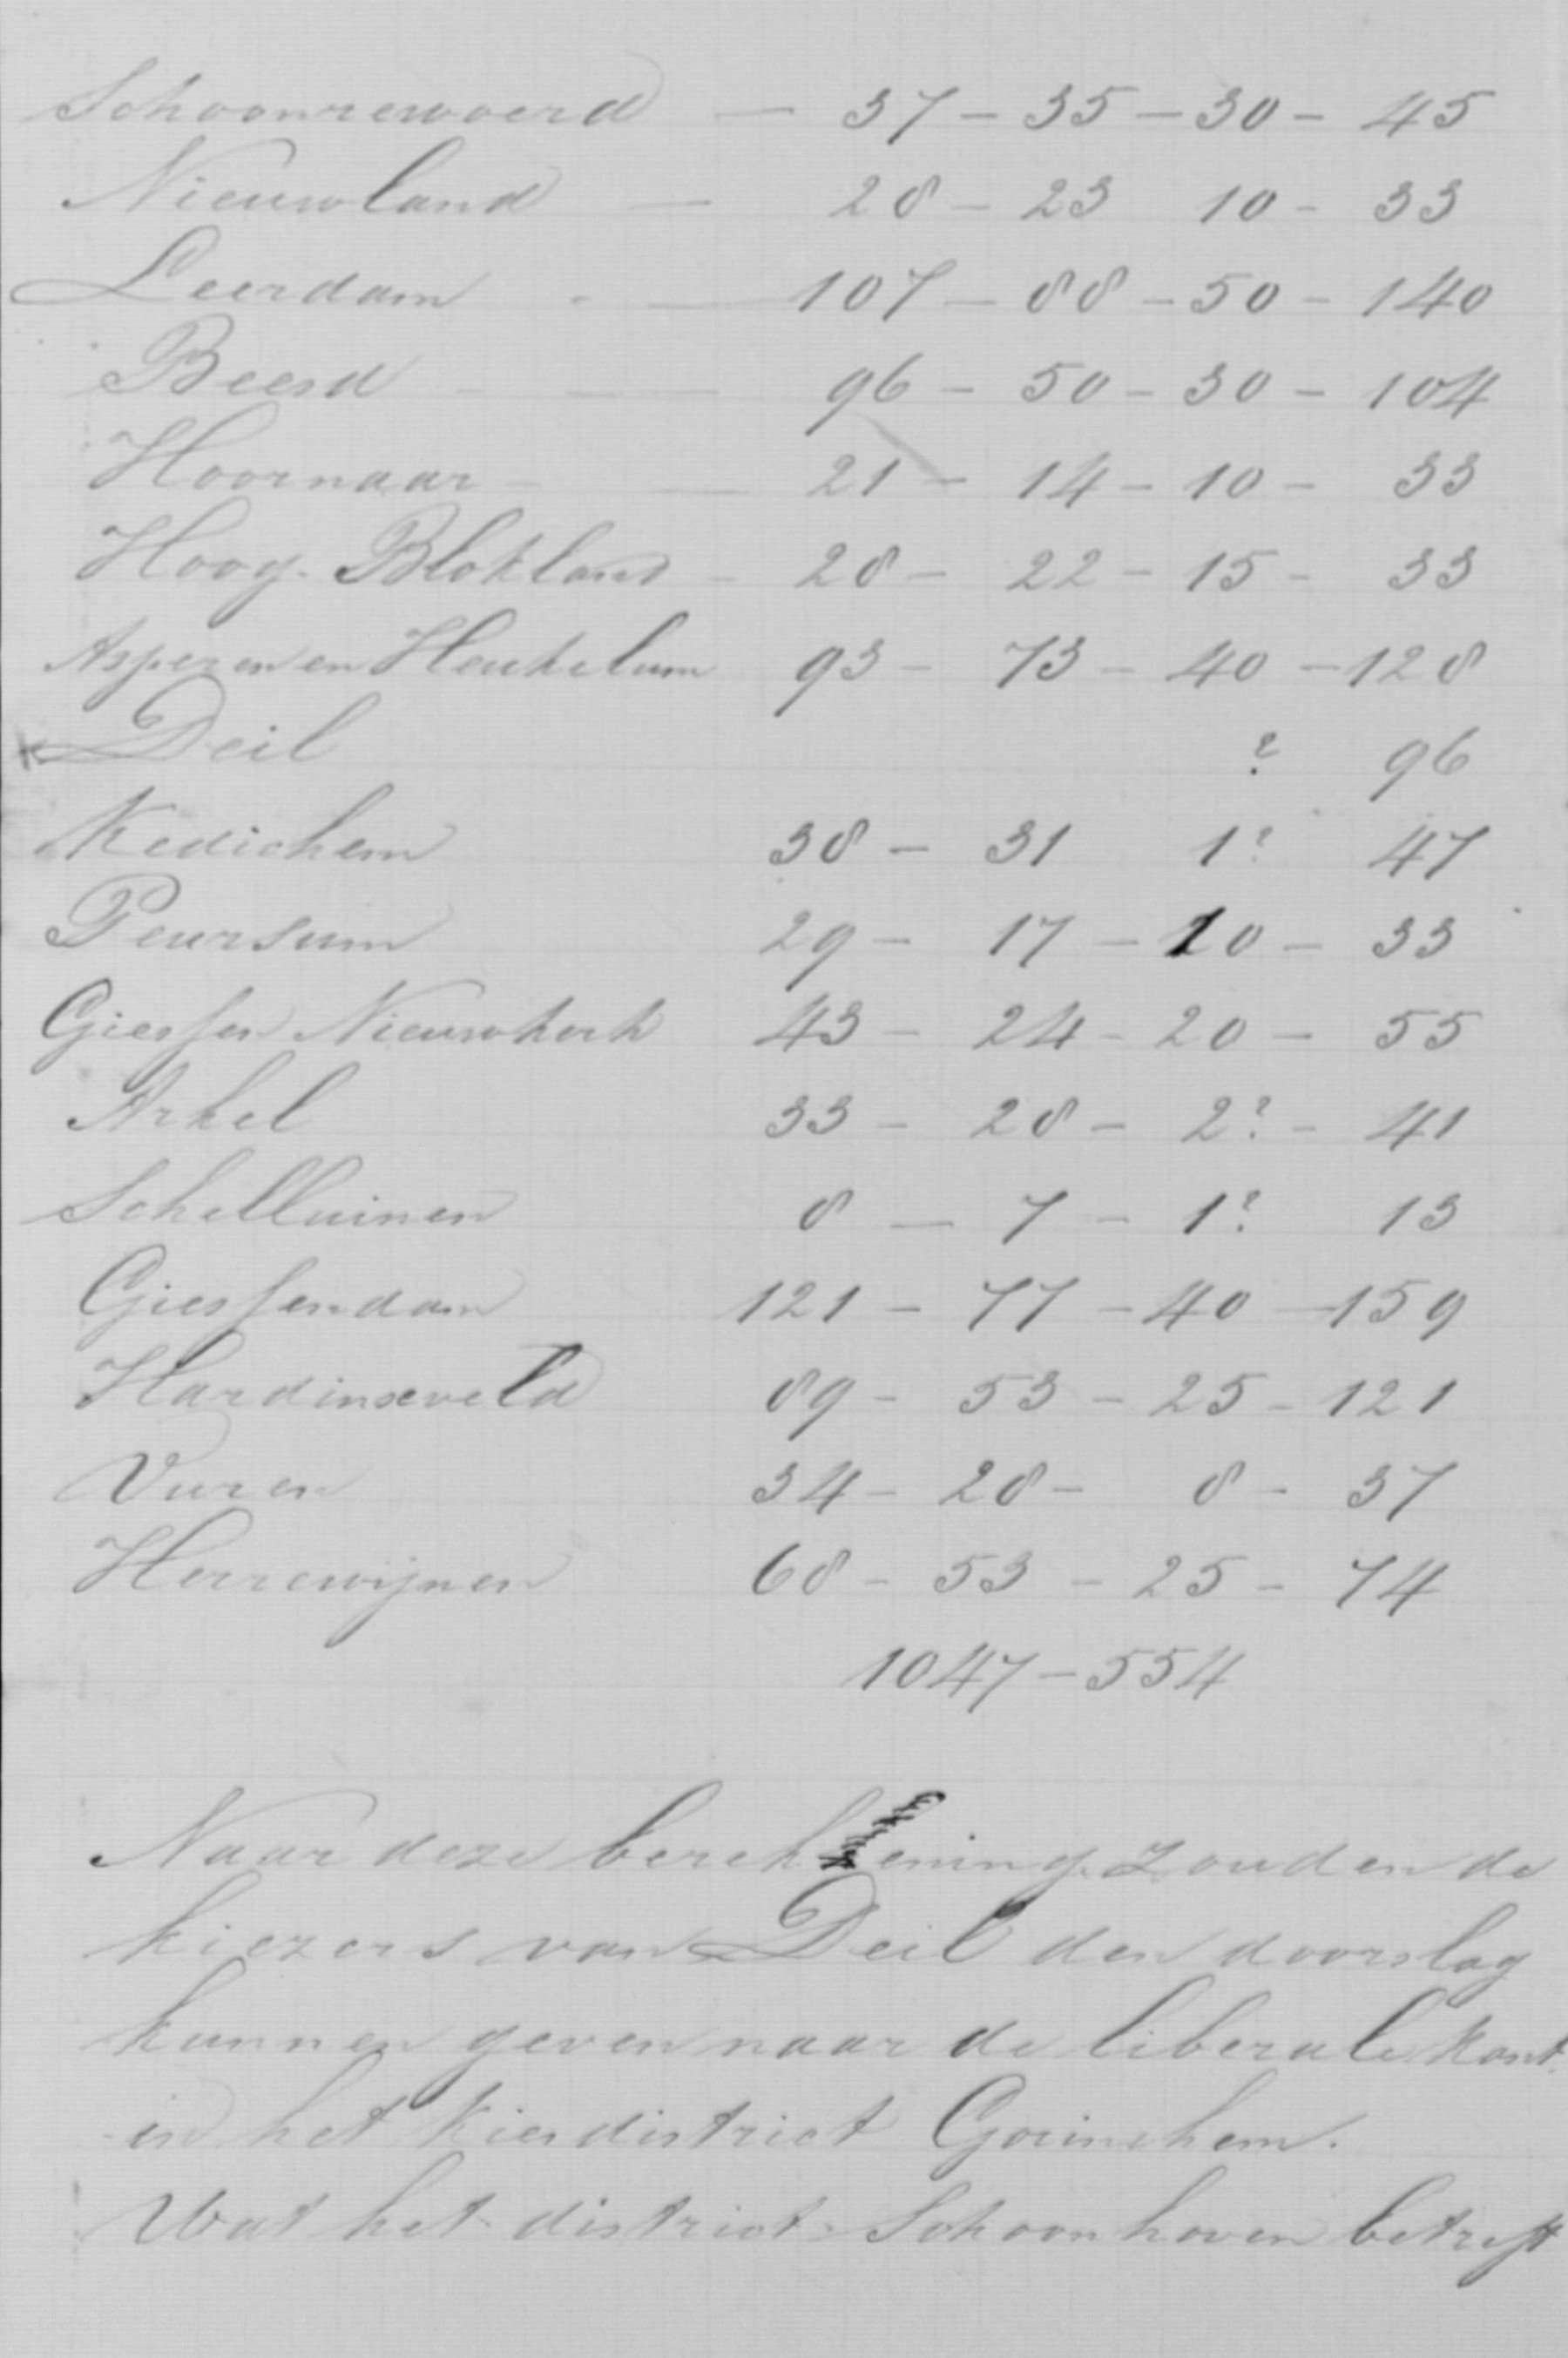 Schoonrewoerd — 37 – 35 – 30 – 45
Nieuwland — 28 – 23 10 – 33
Leerdam - — 107 – 88 – 50 – 140
Beesd - — 96 – 50 – 30 – 104
Hoornaar - — 21 – 14 – 10 – 33
Hoog. Blokland – 28 – 22 – 15 – 33
Asperen en Heukelum 93 – 73 – 40 – 128
Deil ? 96
Kedichem 38 – 31 1? 47
Peursum 29 – 17 – 10 – 33
Giessen Nieuwkerk 43 – 24 – 20 – 55
Arkel 33 – 28 – 2? – 41
Schelluinen 8 — 7 – 1? 13
Giessendam 121 – 77 – 40 – 159
Hardinxveld 89 – 53 – 25 – 121
Vuren 34 – 28 – 8 – 37
Herrewijnen 68 – 53 – 25 – 74
1047 – 554
Naar deze berekening zouden de
kiezers van Deil den doorslag
kunnen geven naar de liberale kant
in het kiesdistrict Gorinchem.
Wat het district Schoonhoven betreft